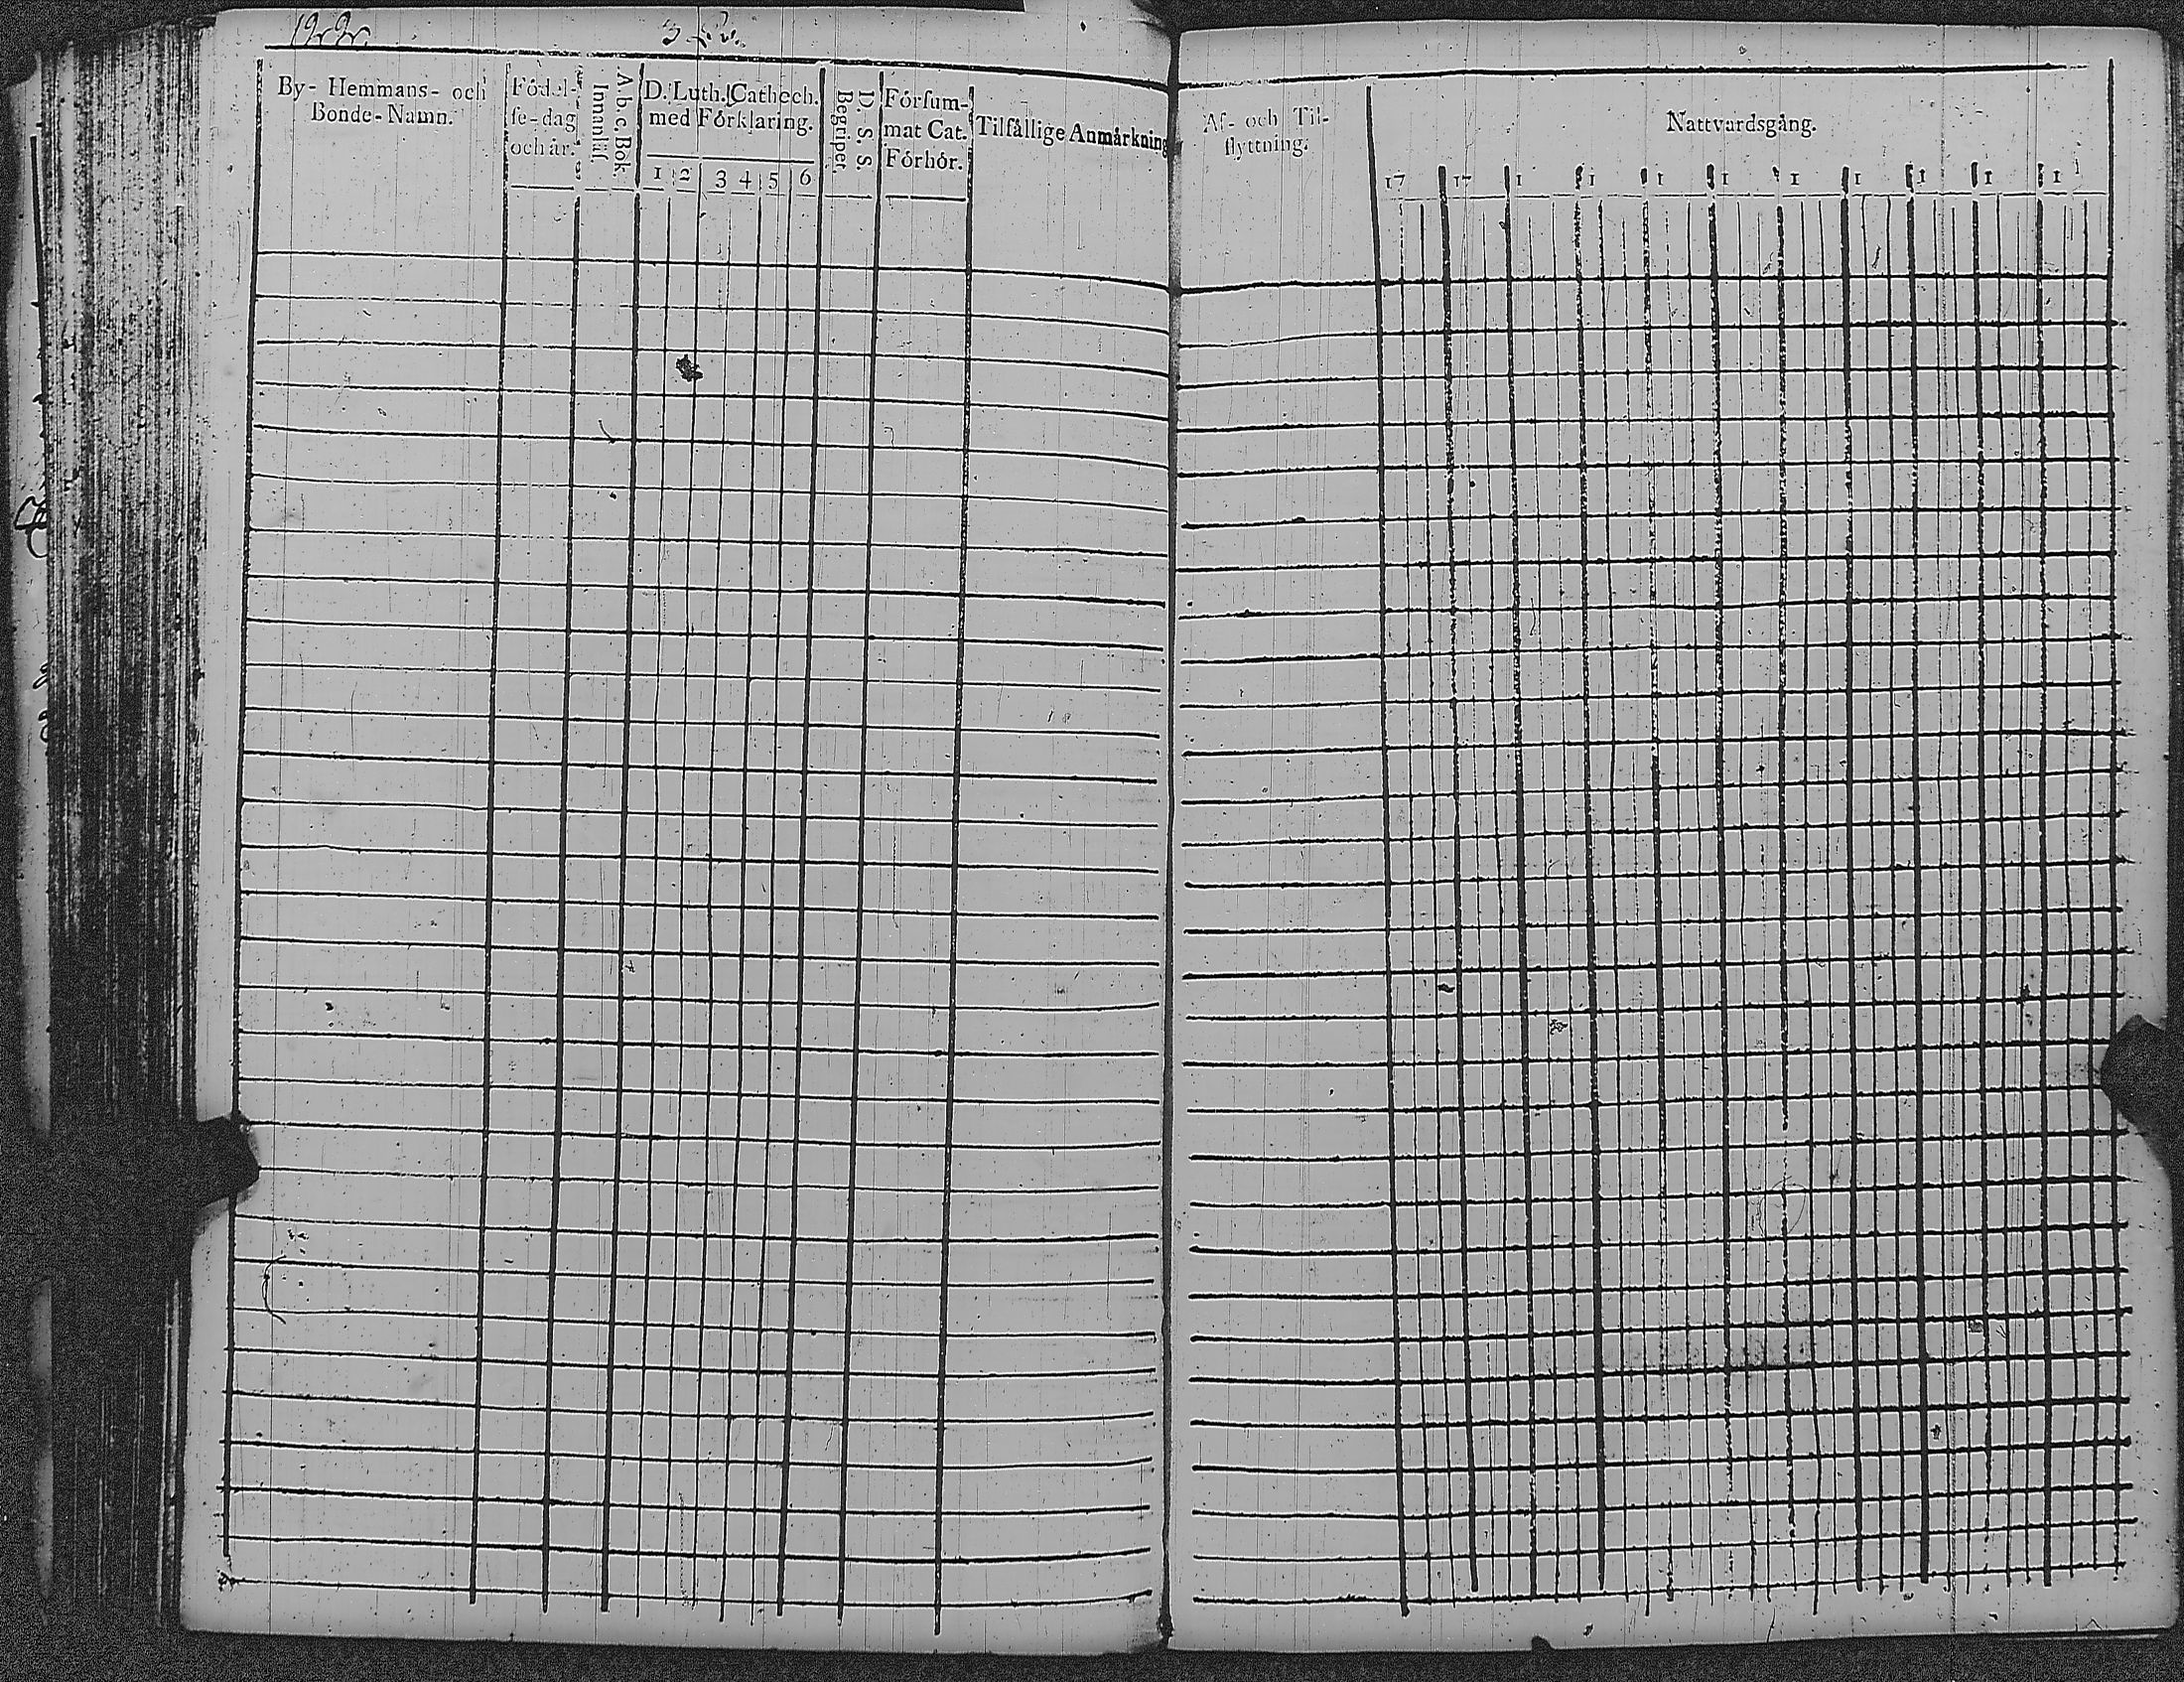 By- Hemmans- och
Bonde- Namn.
Födel-
se-dag
och år.
A. b. c. Bok.
Innanläs.
D. Luth. Cathech.
med Förklaring.
1 2 3 4 5 6
D. S. S.
Begriper.
Försum-
mat Cat.
Förhör.
Tilfällige Anmärkning
Af- och Til-
flyttning.
Nattvardsgång.
17 17 1 1 1 1 1 1 1 1 1